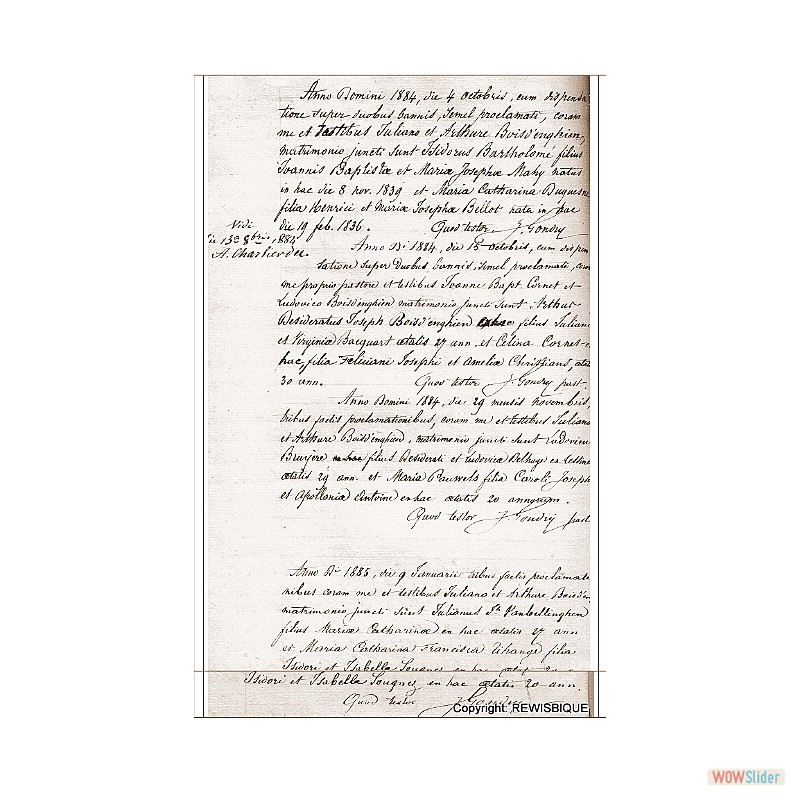 Anno Domini 1884, die 4 octobris, cum dispensa
tione super duobus bannis, semel proclamati, coram
me et testibus Juliano et Arthure Boisd'enghien,
matrimonio juncti sunt Isidorus Bartholomé filius
Joannis Baptistæ et Mariæ Josephæ Mahy natus
in hac die 8 nov. 1839 et Maria Catharina Duquesne
filia Henrici et Mariæ Josephæ Bellot nata in hac
die 19 feb. 1836. Quod testor J. Gondry
Vidi
die 13a 8bris 1884
A. Charlier dec.
Anno Di 1884, die 18 octobris, cum dispen
satione super duobus bannis, semel proclamati, coram
me proprio pastore et testibus Joanne Bapt. Cornet et
Ludovico Boisd'enghien matrimonio juncti sunt Arthur
Desideratus Joseph Boisd'enghien filius Juliani
et Virginiæ Bacquart ætatis 27 ann. et Celina Cornet
hac, filia Feliciani Josephi et Ameliæ Christiaens, ætat
30 ann. Quod testor J. Gondry past.
Anno Domini 1884, die 29 mensis novembris,
tribus factis proclamationibus, coram me et testibus Juliano
et Arthure Boisd'enghien, matrimonio juncti sunt Ludovicus
Bruyère filius Desiderati et Ludovicæ Delhaye ex Lessines
ætatis 29 ann. et Maria Pauwels filia Caroli Joseph
et Apolloniæ Antoine ex hac ætatis 20 annorum.
Quod testor J. Gondry past
Anno Di 1885, die 9 Januarii tribus factis proclamatio
nibus coram me et testibus Juliano et Arthure Boisd'en
matrimonio juncti sunt Julianus Jh Vanbellinghen
filius Mariæ Catharinæ ex hac ætatis 27 ann
et Maria Catharina Francisca Uhange filia
Isidori et Isabellæ Souques ex hac ætatis 20
Isidori et Isabellæ Souques ex hac ætatis 20 ann.
Quod testor J. Gondry
Copyright: REWISBIQUE
WOWSlider